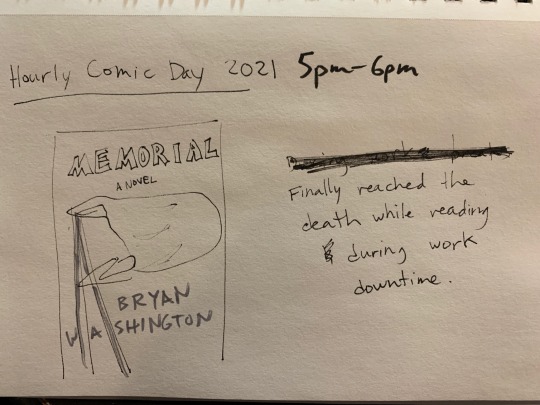 Hourly Comic Day 2021 5pm-6pm
MEMORIAL
A NOVEL
BRYAN
WASHINGTON
Finally reached the
death while reading
during work
downtime.